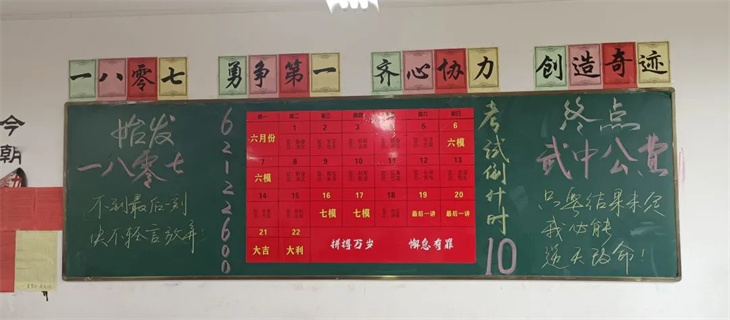 一八零七 勇争第一 齐心协力 创造奇迹
始发
一八零七
不到最后一刻
决不轻言放弃!
6
2
1
2
2
6
0
0
周一 周二 周三 周四 周五 周六 周日
1 2 3 4 5 6
六月份 六模
7 8 9 10 11 12 13
六模
14 15 16 17 18 19 20
七模 七模 最后一讲 最后一讲
21 22
大吉 大利
拼搏万岁 懈怠有罪
考试倒计时
10
终点
武中公费
只要结果未定
我必能
逆天改命!
今朝